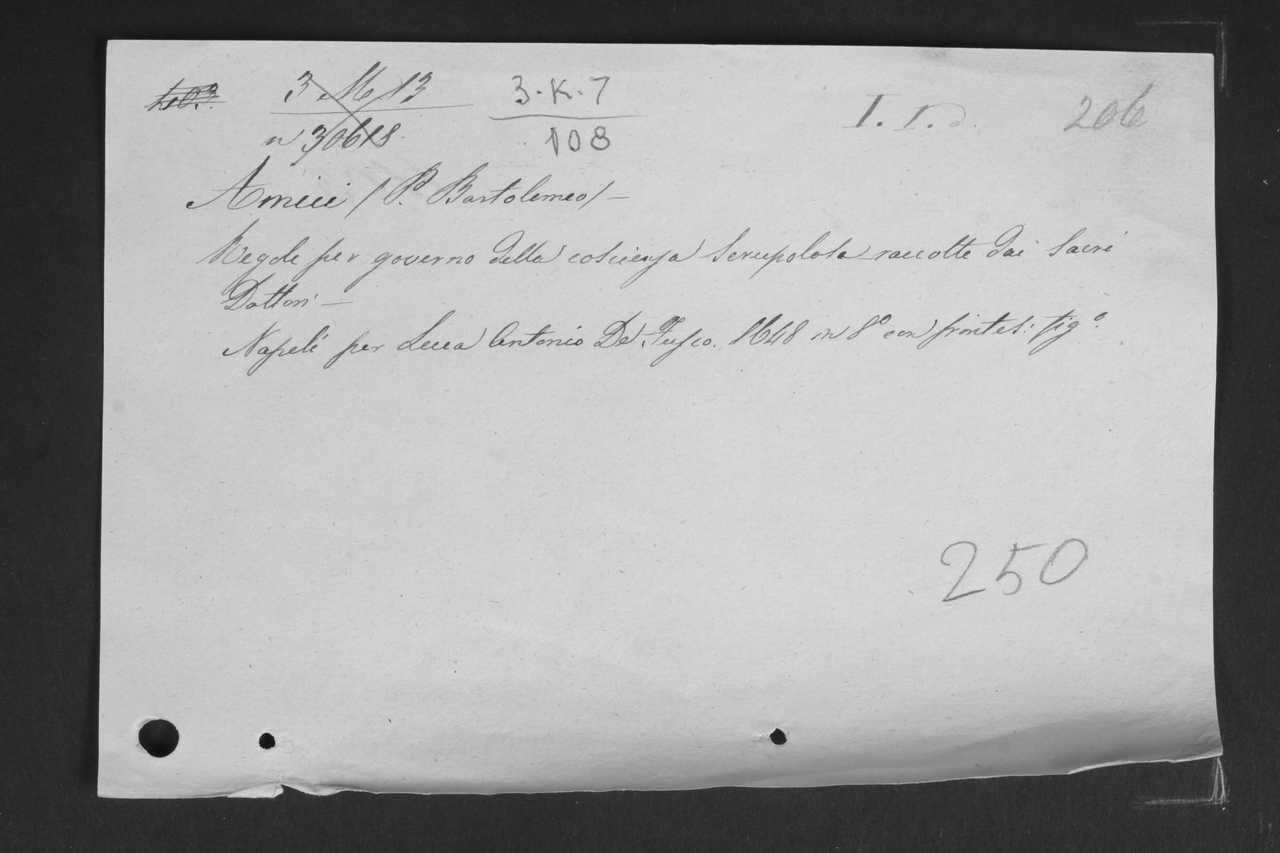 3 M 13 3-K-7 I. I. D. 206
n 30618 108
Amici /P. Bartolomeo/ —
Regole per governo della coscienza Scrupolosa raccolte dai Sacri
Dottori —
Napoli per Luca Antonio De Fusco. 1648 in 8° con frontesp: fig°.
250